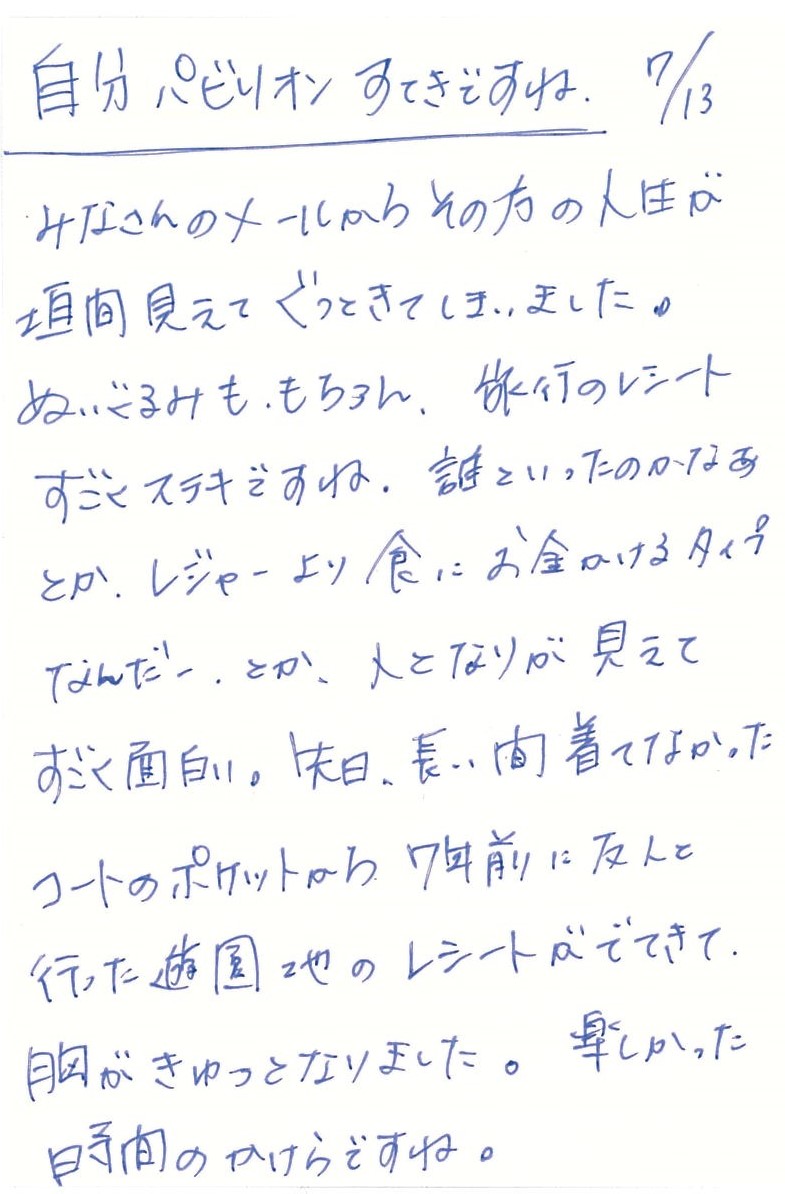 自分パビリオンすてきですね. 7/13
みなさんのメールからその方の人生が
垣間見えてぐっときてしまいました。
ぬいぐるみも、もちろん、旅行のレシート
すごくステキですね. 誰といったのかなあ
とか、レジャーより食にお金かけるタイプ
なんだー、とか、人となりが見えて
すごく面白い。先日、長い間着てなかった
コートのポケットから7年前に友人と
行った遊園地のレシートがでてきて、
胸がきゅっとなりました。楽しかった
時間のかけらですね。